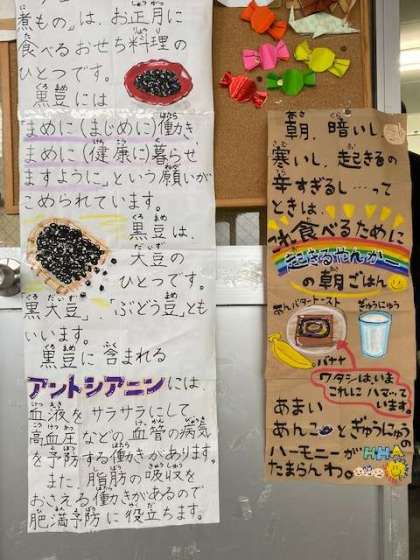 煮もの」は、お正月に
食べるおせち料理の
ひとつです。
黒豆には
「まめに(まじめに)働き、
まめに(健康に)暮らせ
ますように」という願いが
こめられています。
黒豆は、
大豆の
ひとつです。
「黒大豆」、「ぶどう豆」とも
いいます。
黒豆に含まれる
アントシアニンには、
血液をサラサラにして、
高血圧などの血管の病気
を予防する働きがあります。
また、脂肪の吸収を
おさえる働きがあるので
肥満予防に役立ちます。
朝、暗いし、
寒いし、起きるの
辛すぎるし…って
ときは、
食べるために
起きるもんかー
の朝ごはん
あんバタートースト
ぎゅうにゅう
バナナ
ワタシは、いま
これに ハマって
います。
あまい
あんことぎゅうにゅう
ハーモニーが
たまらんわ。